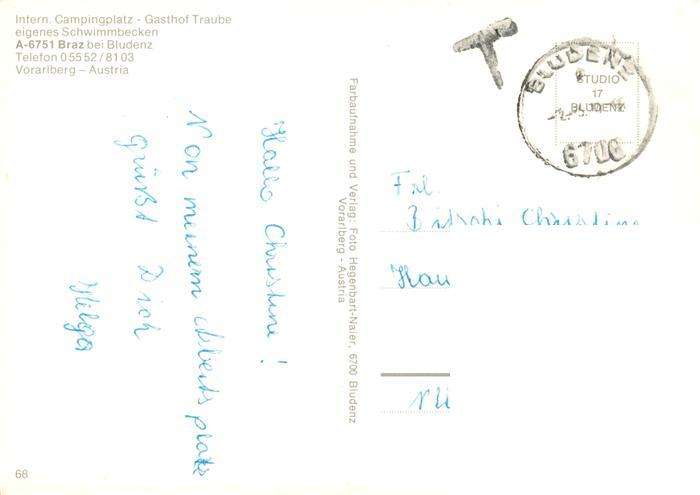 Intern. Campingplatz - Gasthof Traube
eigenes Schwimmbecken
A-6751 Braz bei Bludenz
Telefon 05552/8103
Vorarlberg – Austria
T
BLUDENZ
6700
STUDIO
17
BLUDENZ
Hallo Christine!
Von meinem Arbeitsplatz
grüßt Dich
Helga
Farbaufnahme und Verlag: Foto Hegenbart-Naier, 6700 Bludenz
Vorarlberg - Austria
Frl.
Christine
66